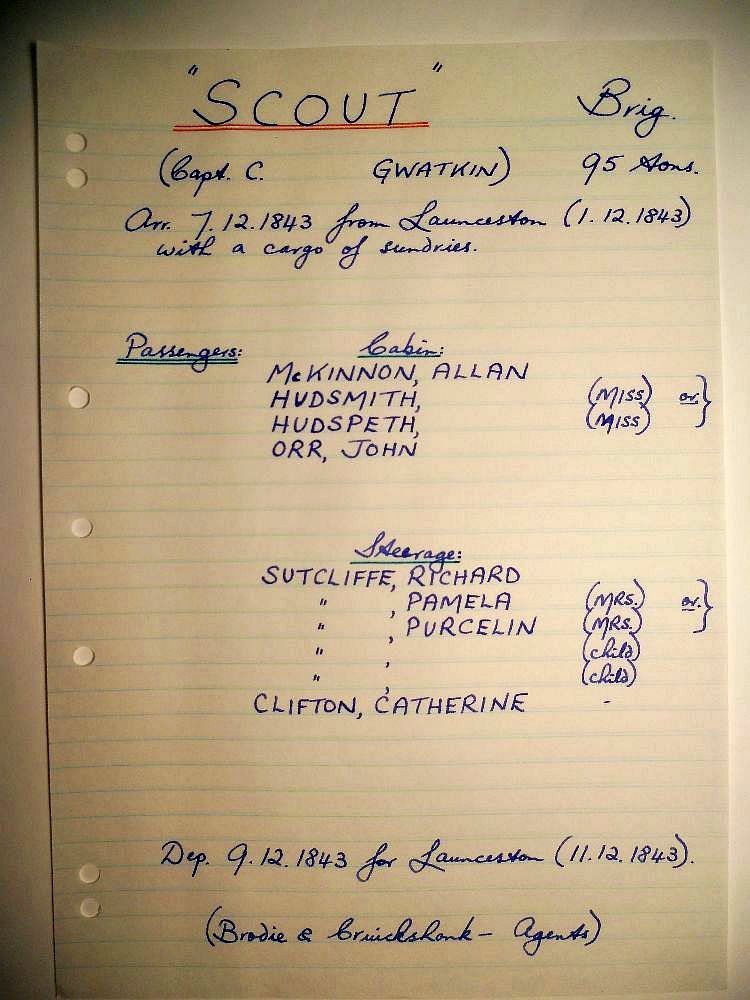 "SCOUT" Brig.
(Capt. C. GWATKIN) 95 tons.
Arr. 7.12.1843 from Launceston (1.12.1843)
with a cargo of sundries.
Passengers: Cabin:
McKINNON, ALLAN
HUDSMITH, (MISS) or }
HUDSPETH, (MISS)
ORR, JOHN
Steerage:
SUTCLIFFE, RICHARD
" , PAMELA (MRS.) or. }
" , PURCELIN (MRS.)
" , (child)
" , (child)
CLIFTON, CATHERINE -
Dep. 9.12.1843 for Launceston (11.12.1843).
(Brodie & Cruickshank - Agents)